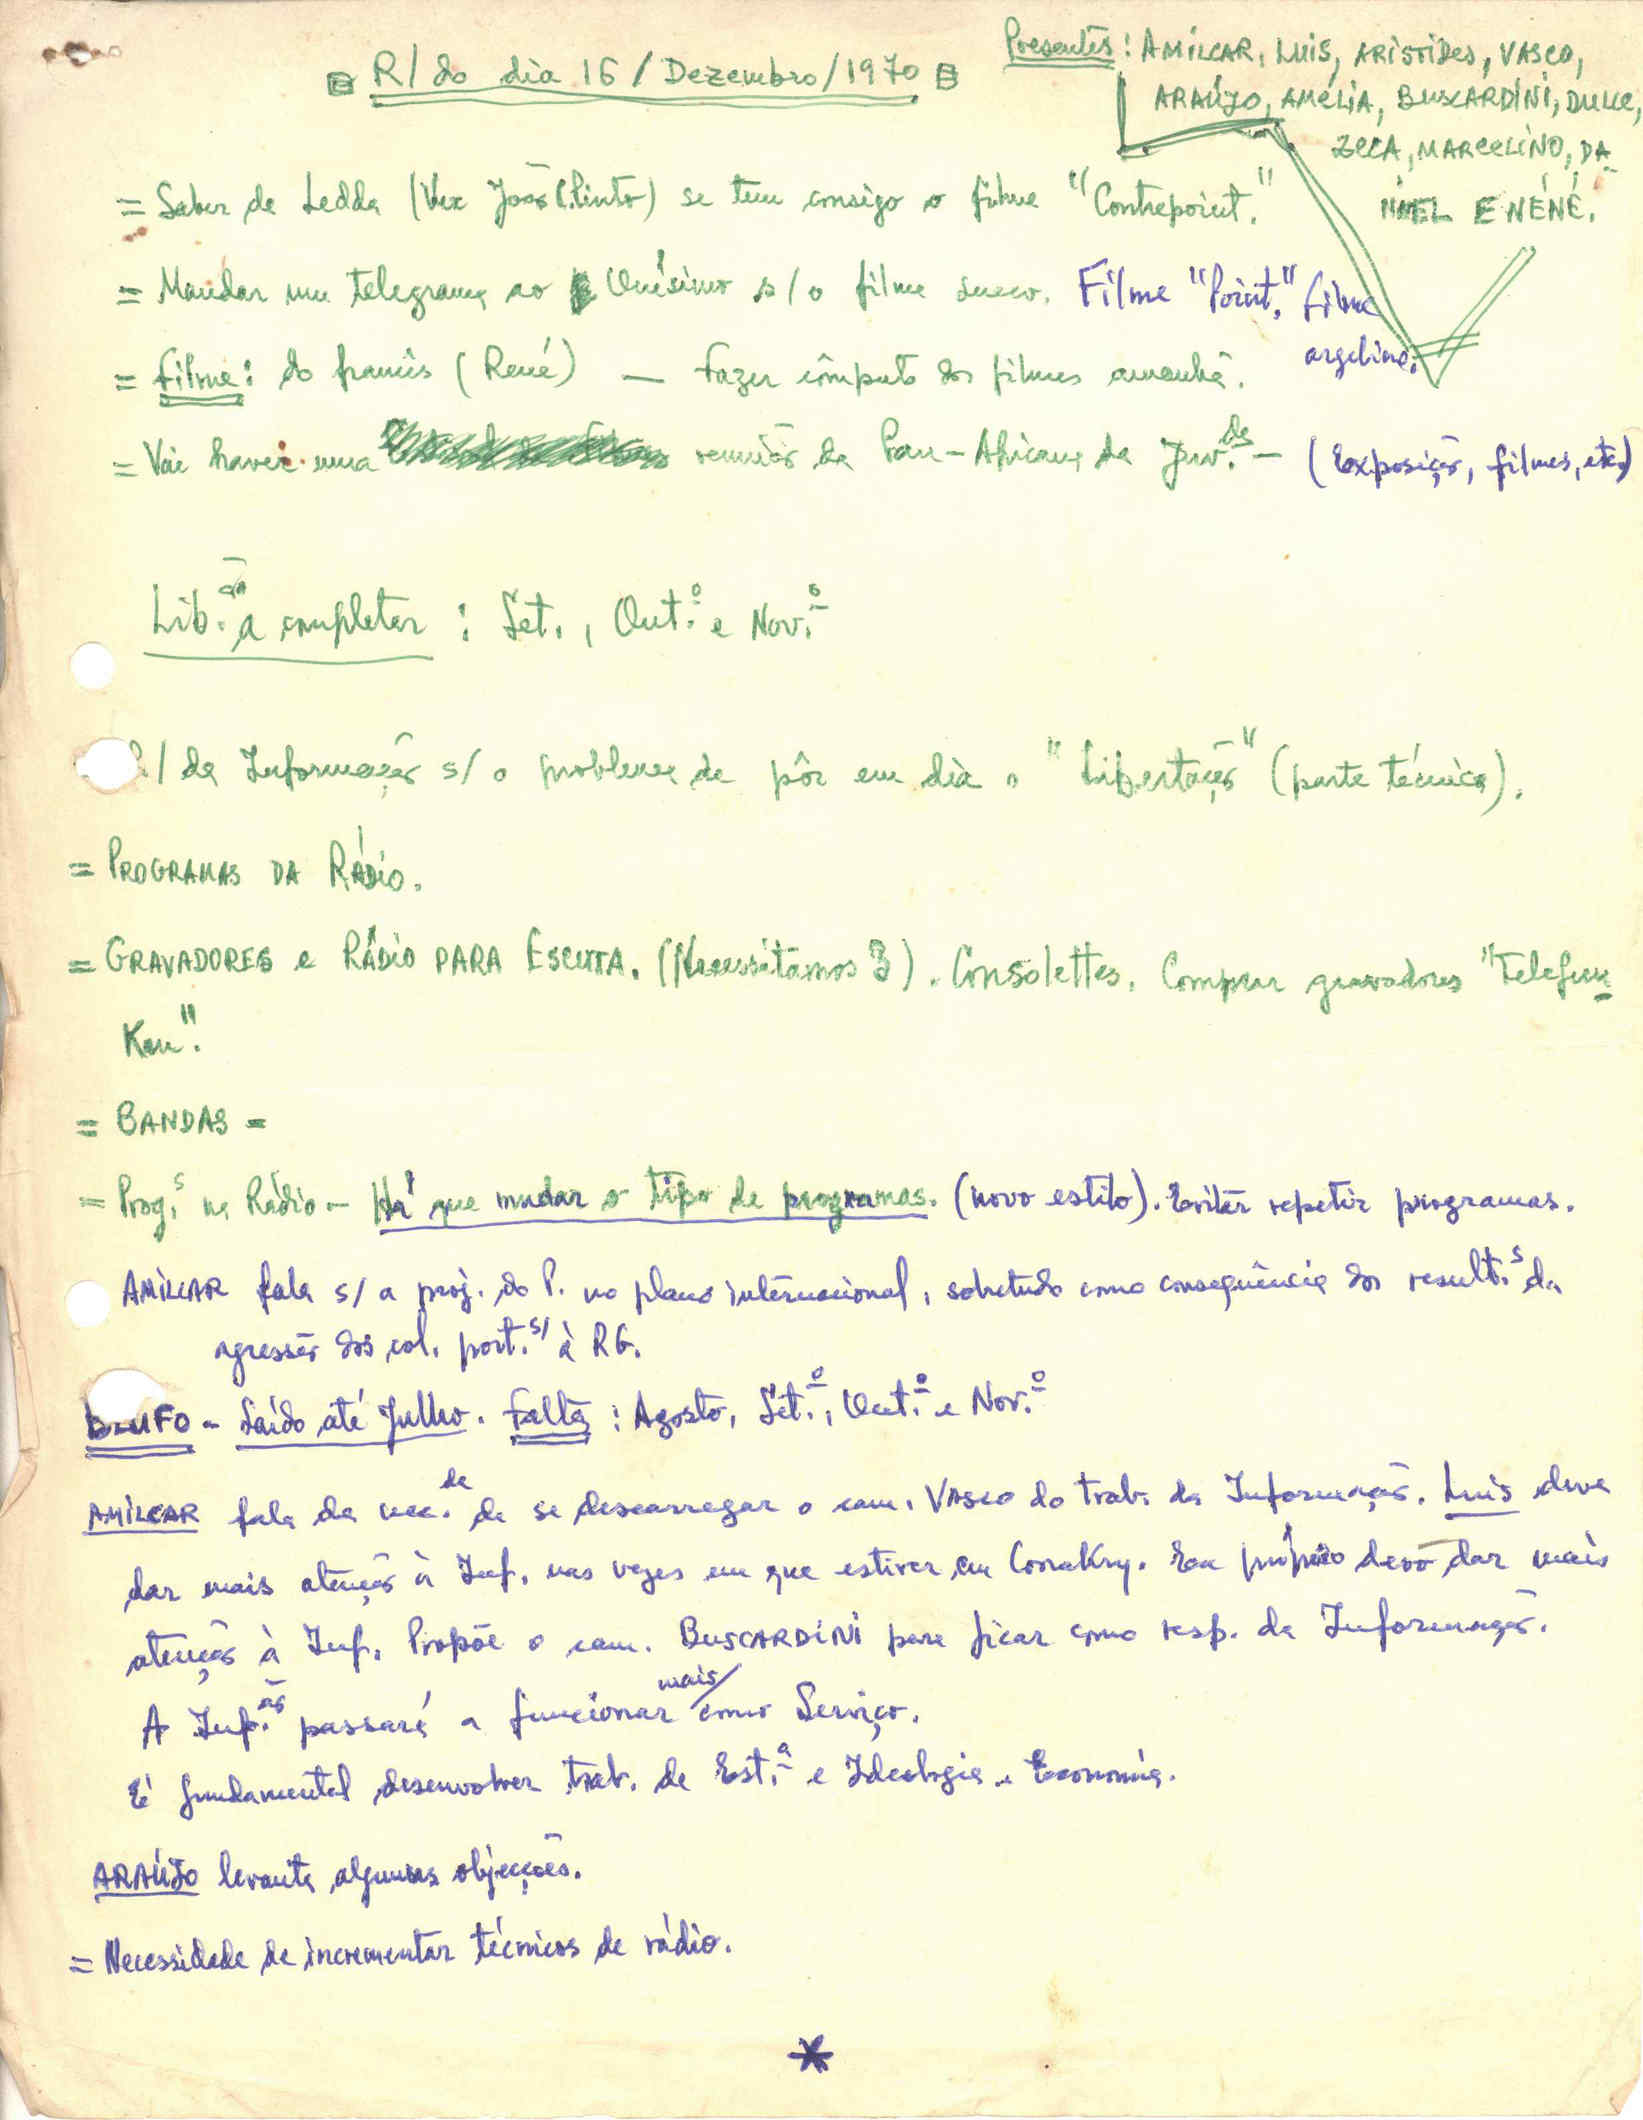 R/ do dia 16/Dezembro/1970
Presentes: AMÍLCAR, LUIS, ARISTIDES, VASCO,
ARAÚJO, AMÉLIA, BUSCARDINI, DULCE,
ZECA, MARCELINO, DA-
NIEL E NÉNÉ.
= Saber de Ledda (Ver João C. Pinto) se tem consigo o filme "Contrepoint."
= Mandar um telegrama ao Onésimo s/ o filme sueco. Filme "Point." filme
argelino.
= Filme: do francês (René) — Fazer cômputo dos filmes amanhã.
= Vai haver uma reunião da Pan-Africana da Juv.de — (Exposição, filmes, etc.)
Lib.ão a completar: Set., Out.o e Nov.o
R/ da Informação s/ o problema de pôr em dia o "Libertação" (parte técnica).
= PROGRAMAS DA RÁDIO.
= GRAVADORES e RÁDIO PARA ESCUTA. (Necessitamos 3). Consolettes. Comprar gravadores "Telefun-
Ken".
= BANDAS =
= Prog.s na Rádio — Há que mudar o tipo de programas. (novo estilo). Evitar repetir programas.
AMÍLCAR fala s/ a proj. do P. no plano internacional, sobretudo como consequência dos result.s da
agressão dos col. port.s/ à RG.
BLUFO — Saído até Julho. Falta: Agosto, Set.o, Out.o e Nov.o
AMÍLCAR fala da nec.de de se descarregar o cam. VASCO do trab. da Informação. Luis deve
dar mais atenção à Inf. nas vezes em que estiver em Conakry. Eu próprio devo dar mais
atenção à Inf. Propõe o cam. BUSCARDINI para ficar como resp. da Informação.
A Inf.ão passará a funcionar mais/ como Serviço.
É fundamental desenvolver trab. de Est.a e Ideologia e Economia.
ARAÚJO levanta algumas objecções.
= Necessidade de incrementar técnicos de rádio.